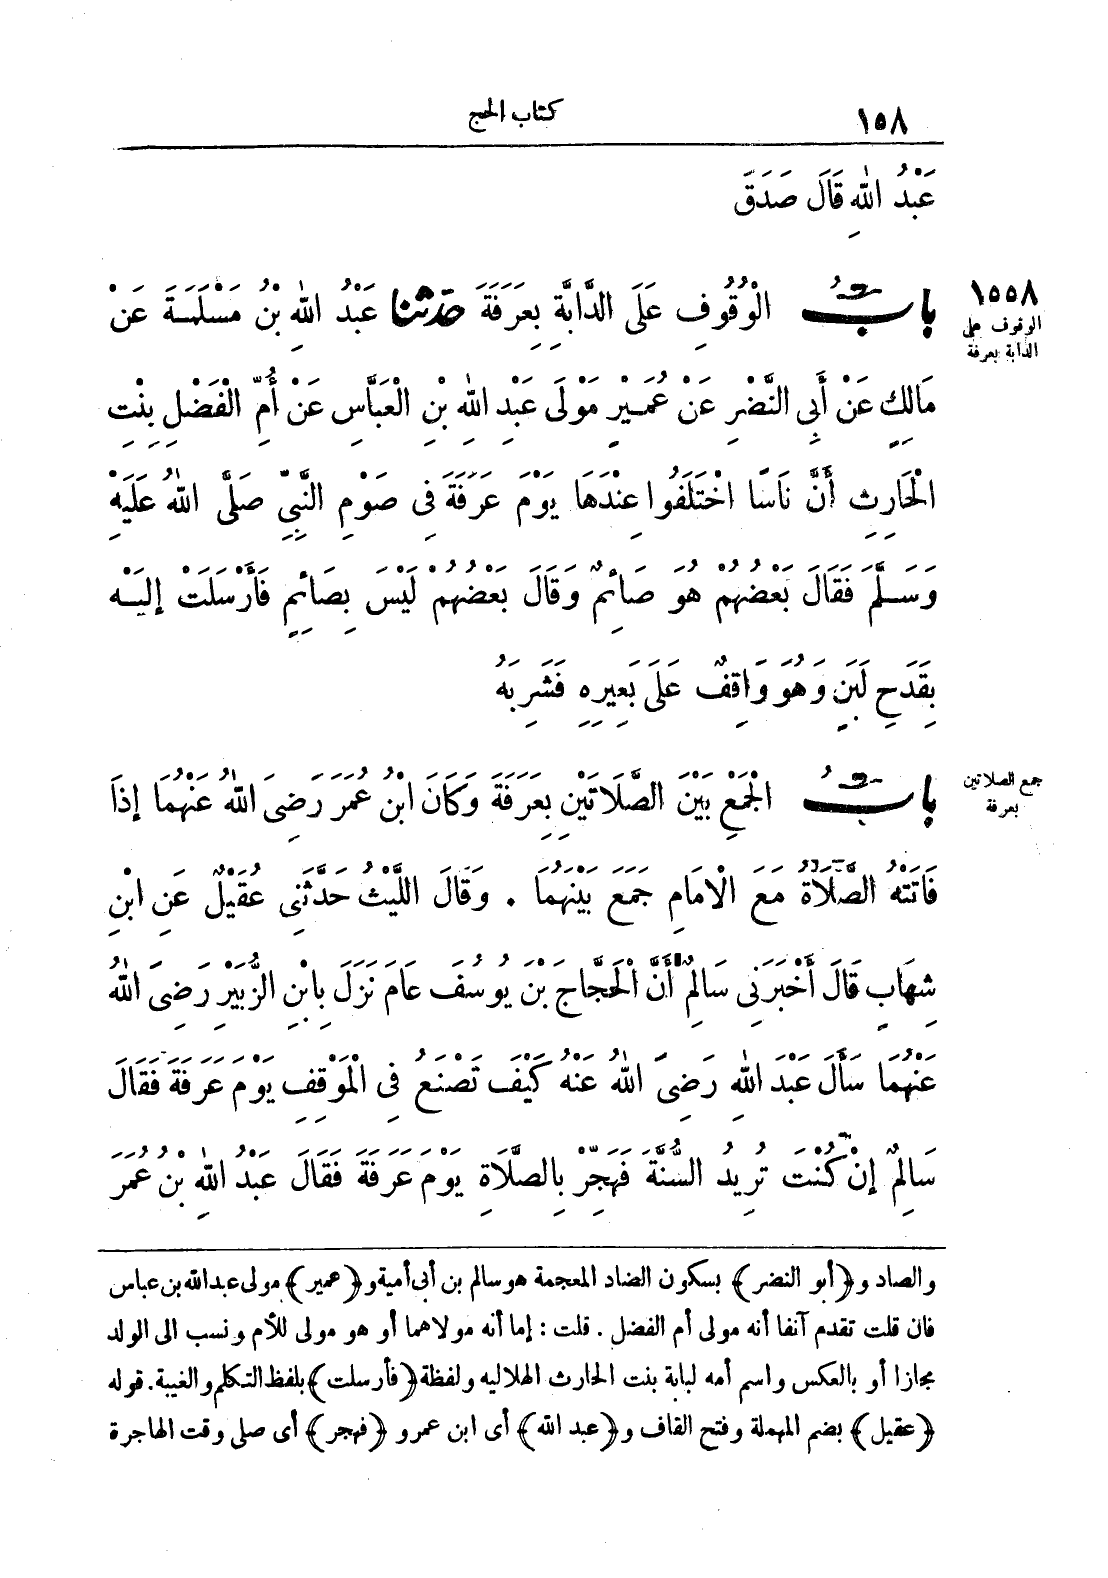 ١٥٨
كتاب الحج
عَبْدُ اللهِ قَالَ صَدَقَ
بابُ الْوُقُوفِ عَلَى الدَّابَّةِ بِعَرَفَةَ حدثنا عَبْدُ اللهِ بْنُ مَسْلَمَةَ عَنْ
١٥٥٨
الوقوف على
الدابة بعرفة
مَالِكٍ عَنْ أَبِى النَّضْرِ عَنْ عُمَيْرٍ مَوْلَى عَبْدِ اللهِ بْنِ الْعَبَّاسِ عَنْ أُمِّ الْفَضْلِ بِنْتِ
الْحَارِثِ أَنَّ نَاسًا اخْتَلَفُوا عِنْدَهَا يَوْمَ عَرَفَةَ فِى صَوْمِ النَّبِيِّ صَلَّى اللهُ عَلَيْهِ
وَسَلَّمَ فَقَالَ بَعْضُهُمْ هُوَ صَائِمٌ وَقَالَ بَعْضُهُمْ لَيْسَ بِصَائِمٍ فَأَرْسَلَتْ إِلَيْهِ
بِقَدَحِ لَبَنٍ وَهُوَ وَاقِفٌ عَلَى بَعِيرِهِ فَشَرِبَهُ
بابُ الْجَمْعِ بَيْنَ الصَّلَاتَيْنِ بِعَرَفَةَ وَكَانَ ابْنُ عُمَرَ رَضِىَ اللهُ عَنْهُمَا إِذَا
جمع الصلاتين
بعرفة
فَاتَتْهُ الصَّلَاةُ مَعَ الْإِمَامِ جَمَعَ بَيْنَهُمَا . وَقَالَ اللَّيْثُ حَدَّثَنِى عُقَيْلٌ عَنِ ابْنِ
شِهَابٍ قَالَ أَخْبَرَنِى سَالِمٌ أَنَّ الْحَجَّاجَ بْنَ يُوسُفَ عَامَ نَزَلَ بِابْنِ الزُّبَيْرِ رَضِىَ اللهُ
عَنْهُمَا سَأَلَ عَبْدَ اللهِ رَضِىَ اللهُ عَنْهُ كَيْفَ تَصْنَعُ فِى الْمَوْقِفِ يَوْمَ عَرَفَةَ فَقَالَ
سَالِمٌ إِنْ كُنْتَ تُرِيدُ السُّنَّةَ فَهَجِّرْ بِالصَّلَاةِ يَوْمَ عَرَفَةَ فَقَالَ عَبْدُ اللهِ بْنُ عُمَرَ
والصاد و﴿أبو النضر﴾ بسكون الضاد المعجمة هو سالم بن أبى أمية و﴿عمير﴾ مولى عبد الله بن عباس
فان قلت تقدم آنفا أنه مولى أم الفضل . قلت : إما أنه مولاهما أو هو مولى للأم ونسب الى الولد
مجازا أو بالعكس واسم أمه لبابة بنت الحارث الهلاليه ولفظة ﴿فأرسلت﴾ بلفظ التكلم والغيبة. قوله
﴿عقيل﴾ بضم المهملة وفتح القاف و﴿عبد الله﴾ أى ابن عمر و﴿فهجر﴾ أى صلى وقت الهاجرة